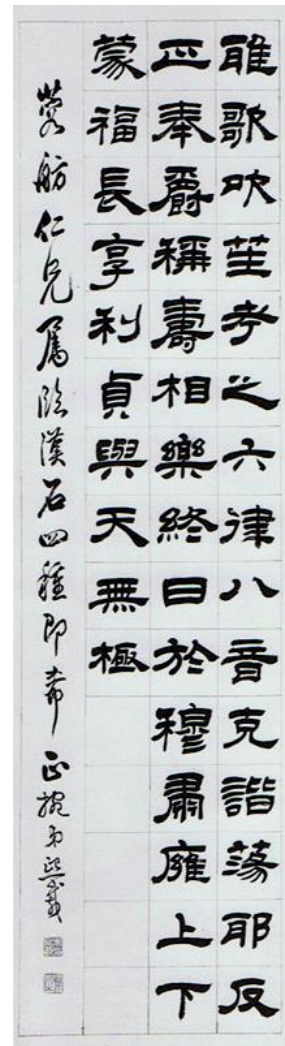 雅歌吹笙考之六律八音克諧蕩耶反
正奉爵稱壽相樂終日於穆肅廱上下
蒙福長享利貞與天無極
舫仁兄屬臨漢石四種即希
正捥弟熙載